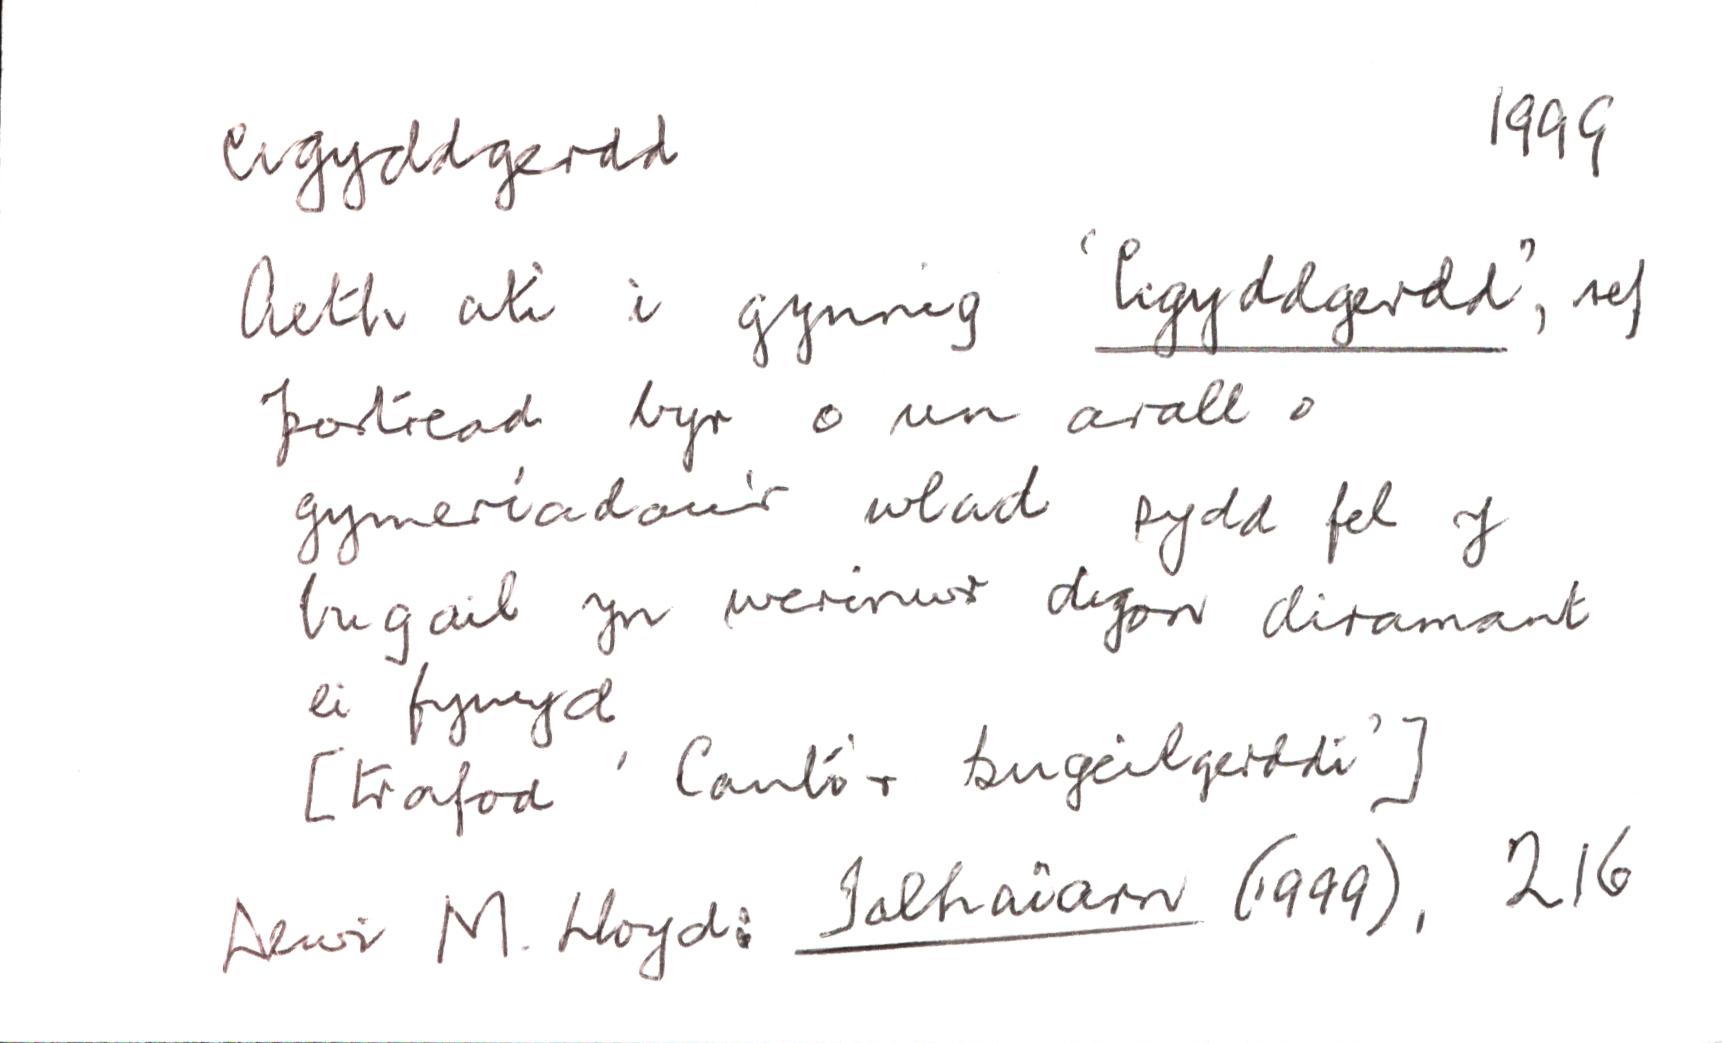 cigyddgerdd 1999
Aeth ati i gynnig 'Cigyddgerdd', sef
portread byr o un arall o
gymeriadau'r wlad sydd fel y
bugail yn werinwr digon diramant
ei fywyd
[trafod 'Cantorr bugeilgerddi']
Dewi M. Lloyd: Talhaiarn (1999), 216